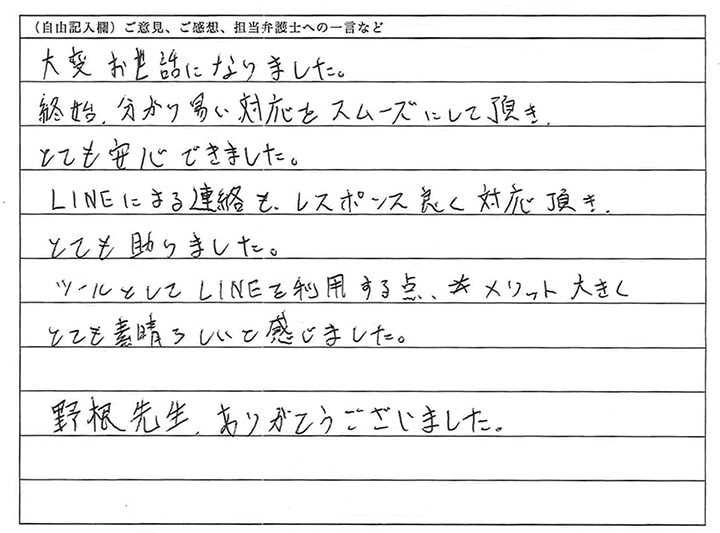 （自由記入欄）ご意見、ご感想、担当弁護士への一言など
大変お世話になりました。
終始、分かり易い対応をスムーズにして頂き、
とても安心できました。
LINEによる連絡も、レスポンス良く対応頂き、
とても助りました。
ツールとしてLINEを利用する点、メリット大きく
とても素晴らしいと感じました。
野根先生、ありがとうございました。